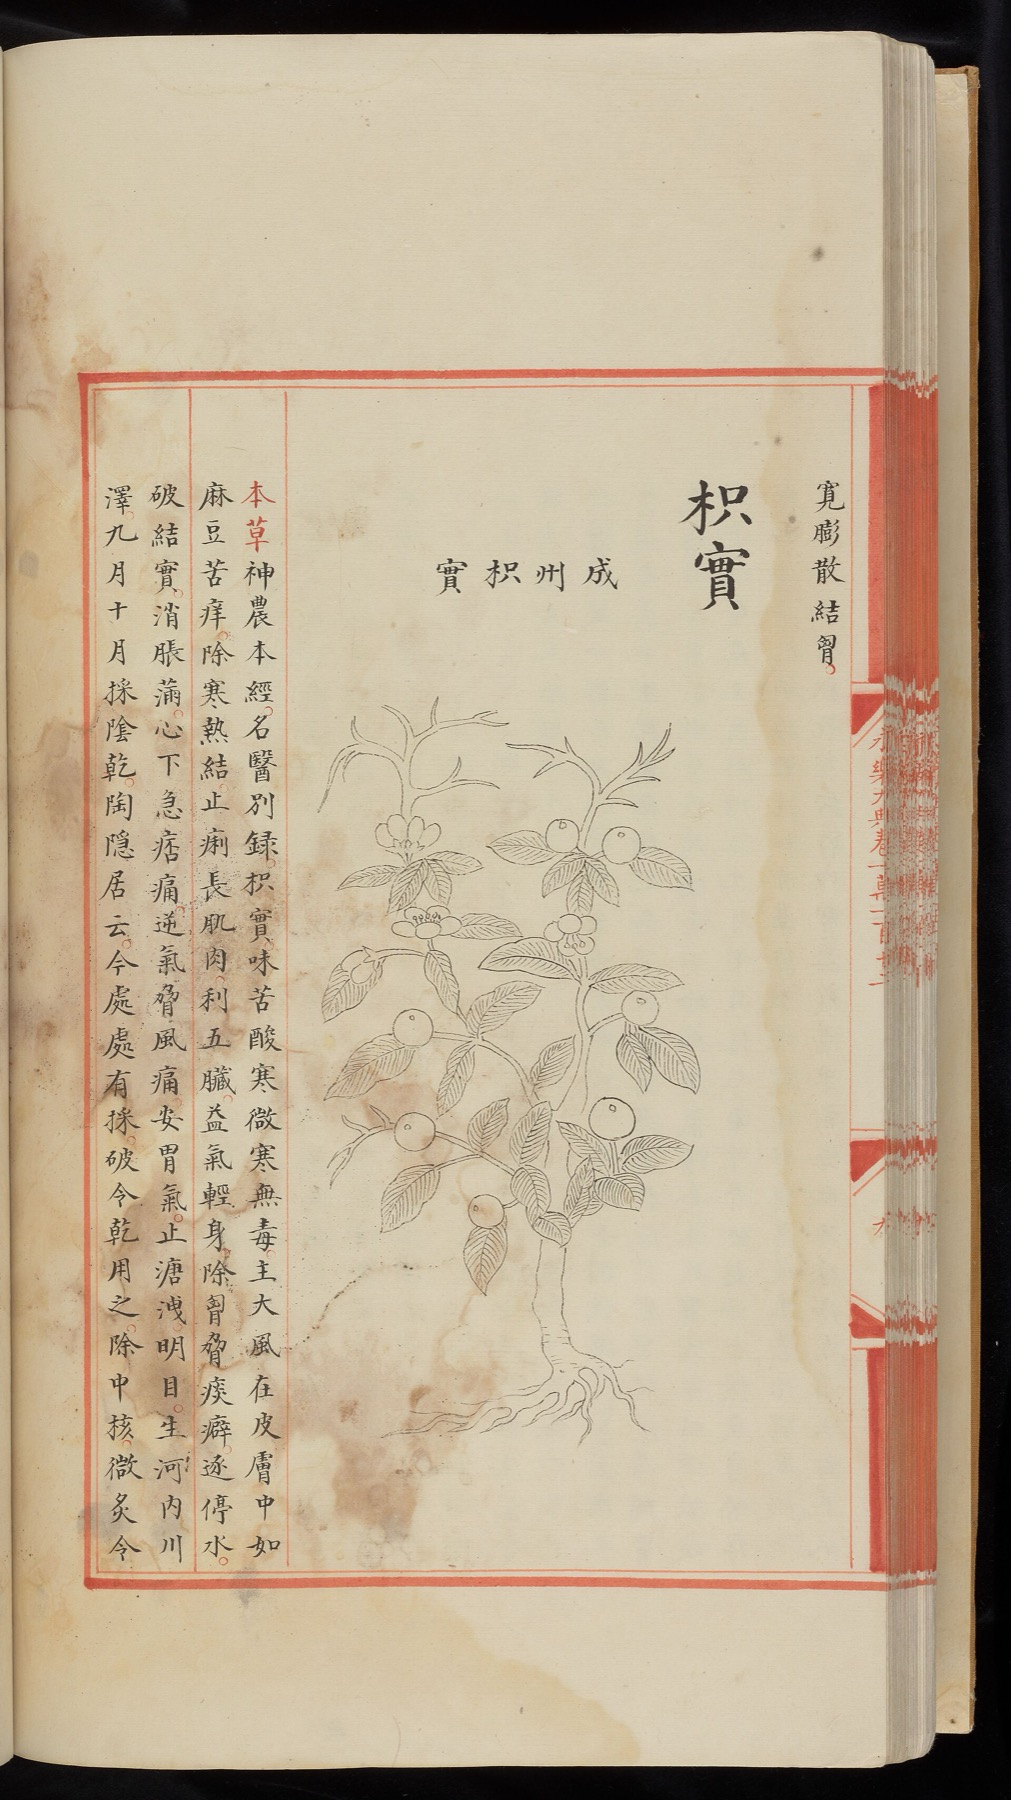 寛膨散結胷
枳實
成州枳實
本草神農本經名醫別録枳實味苦酸寒微寒無毒主大風在皮膚中如
麻豆苦痒除寒熱結止痢長肌肉利五臟益氣輕身除胷脅痰癖逐停水
破結實消脹滿心下急痞痛逆氣脅風痛安胃氣止溏洩明目生河内川
澤九月十月採陰乾陶隠居云今處處有採破令乾用之除中核微炙令
永樂大典卷一萬一